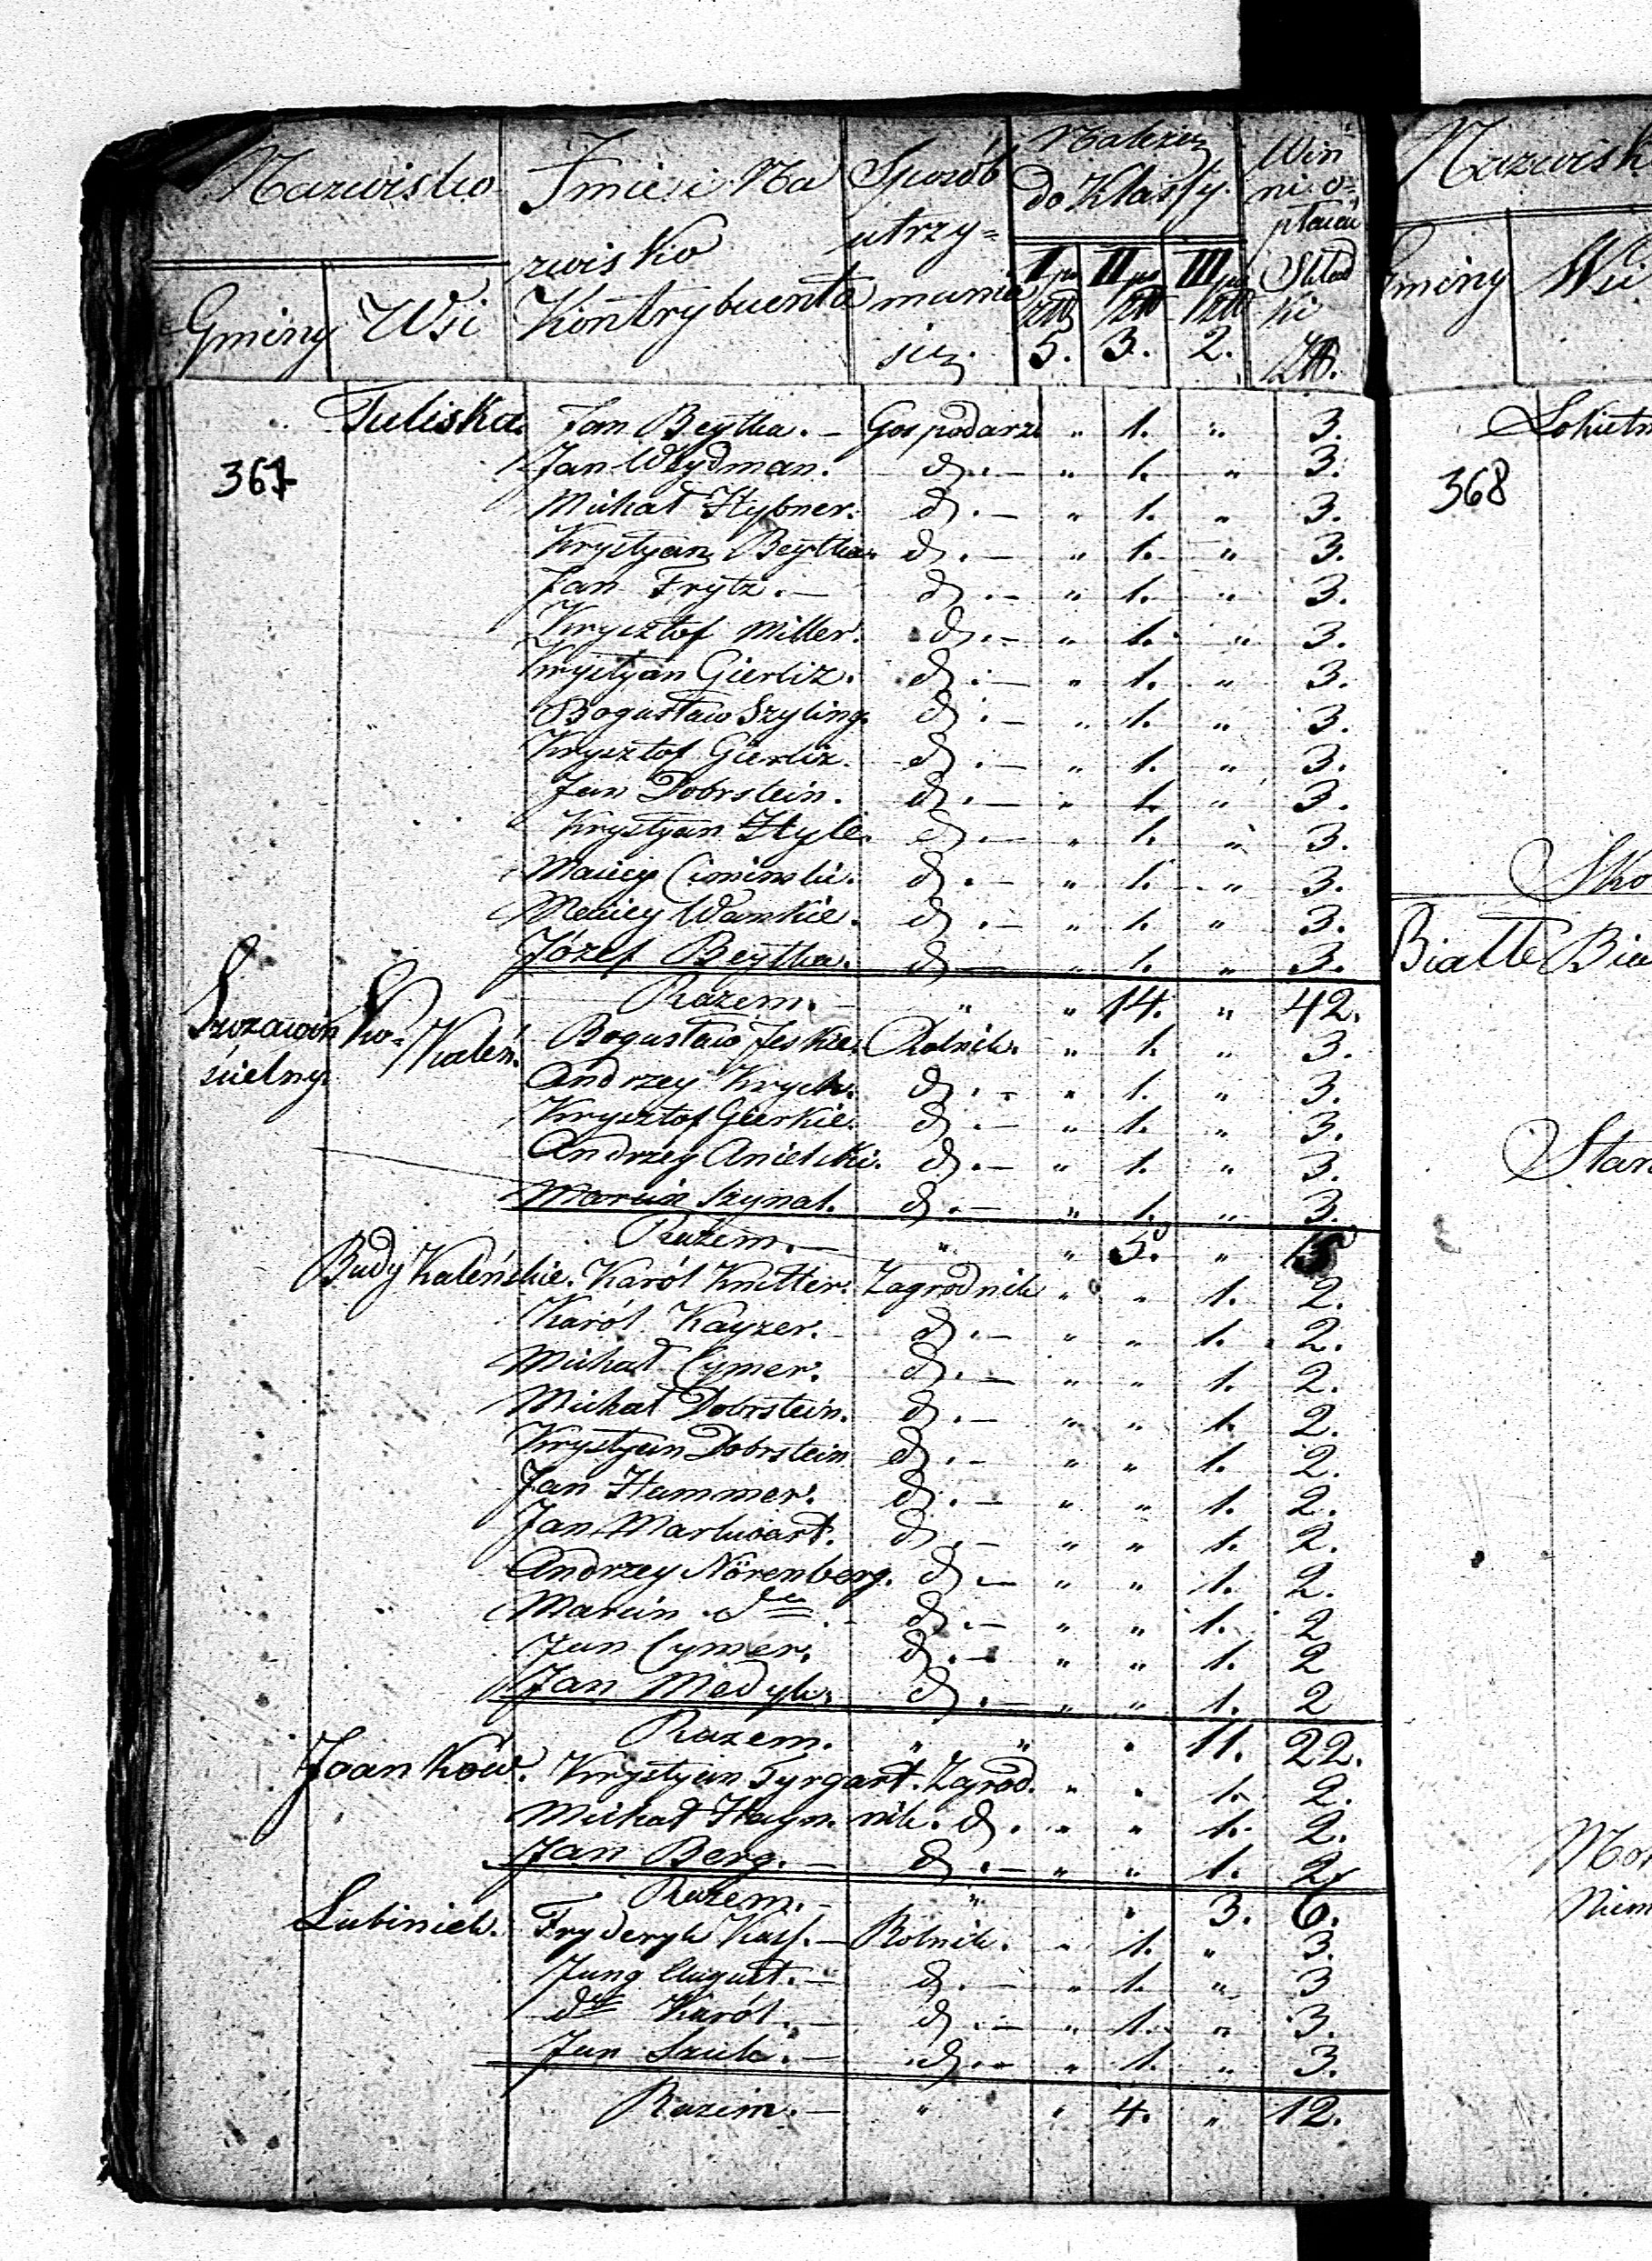 Nazwisko Imie i Na Sposób Należy Win
do Klassy. ni o=
utrzy= płacać
zwisko I II III Skład
Gminy Wsi Kontrybuenta mania Złł Złł Złł ki
się. 5. 3. 2. Złł.
Tuliska. Jan Beytka. — Gospodarz " 1. " 3.
367 Jan Weydman. d. — " 1. " 3.
Michał Hybner. d. — " 1. " 3.
Krystyan Beytka. d. — " 1. " 3.
Jan Frytz. — d. — " 1. " 3.
Krysztof Miller. d. — " 1. " 3.
Krystyan Gierliz. d. — " 1. " 3.
Bogusław Szyling. d. — " 1. " 3.
Krysztof Gierliz. d. — " 1. " 3.
Jan Dobrstein. d. — " 1. " 3.
Krystyan Hyle. d. — " 1. " 3.
Maciey Ciminski. d. — " 1. " 3.
Maciey Wamkie. d. — " 1. " 3.
Józef Beytka. d. — " 1. " 3.
Razem. — " " 14. " 42.
Ko= Kaleń. Bogusław Jeskie. Rolnik. " 1. " 3.
ścielny. Andrzey Krych. d. — " 1. " 3.
Krysztof Gierkie. d. — " 1. " 3.
Andrzey Anielski. d. — " 1. " 3.
Marcin Szynal. d. — " 1. " 3.
Razem. — " " 5. " 15
Budy Kaleńskie. Karól Knitter. Zagrodnik " " 1. 2.
Karól Kayzer. d. — " " 1. 2.
Michał Cymer. d. — " " 1. 2.
Michał Dobrstein. d. — " " 1. 2.
Krystyan Dobrstein d. — " " 1. 2.
Jan Hammer. d. — " " 1. 2.
Jan Markwart. d. — " " 1. 2.
Andrzey Nörenberg. d. — " " 1. 2.
Marcin d. — " " 1. 2
Jan Cymer. d. — " " 1. 2
Jan Medyk. d. — " " 1. 2
Razem. " " " 11. 22.
Joankow. Krystyan Tyrgart. Zagrod. " " 1. 2.
Michał Hayn. nik. d. " " 1. 2.
Jan Berg. — d. — " " 1. 2.
Razem. — " " 3. 6.
Lubiniek. Fryderyk Kass. — Rolnik. " 1. " 3.
Jung August. — d. — " 1. " 3
Karól. — d. — " 1. " 3.
Jan Szulc. — d. — " 1. " 3.
Razem. — " " 4. " 12.
Nazwisk
Gminy Wsi
368
Białłe